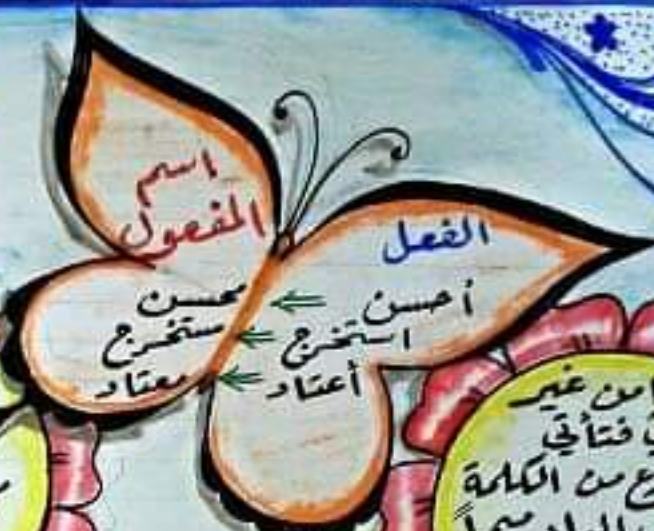 اسم
المفعول
الفعل
أحسن
محسن
استخرج
ستخرج
أعتاد
معتاد
من غير
فتأتي
ع من الكلمة